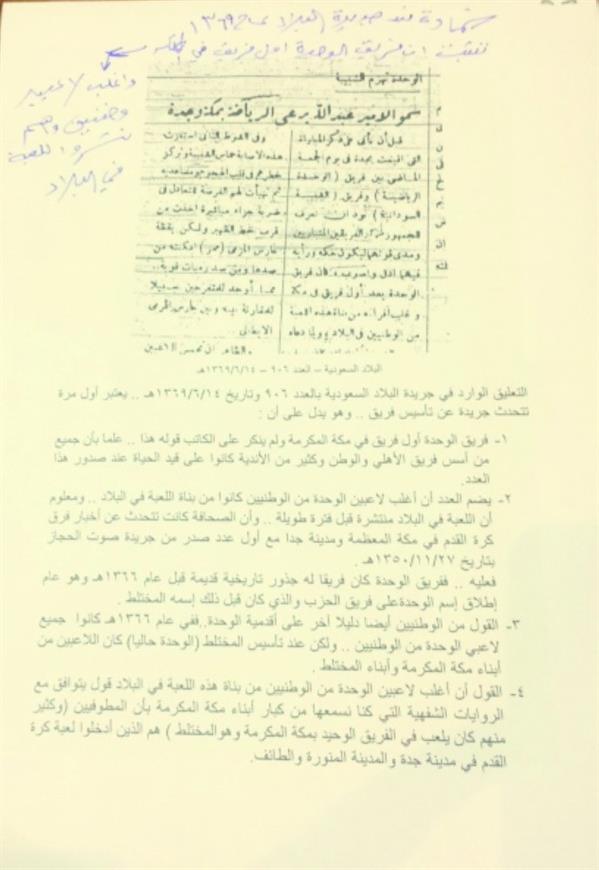 شهادة من جريدة البلاد عام ١٣٦٩هـ
فريق الوحدة أول فريق في
الوحدة تهزم الشبيبة
سمو الامير عبد الله يرعى الرياضة بمكة وجدة
قبل أن نأتي على ذكر المباراة
التي اقيمت بجدة في يوم الجمعة
الماضي بين فريق (الوحدة
الرياضية) وفريق (الشبيبة
السودانية) نود ان نعرف
الجمهور بمركز الفريقين المتباريين
ومدى قوتهما ليكون حكمه ورأيه
فيهما ادق واصوب فان فريق
الوحدة يعد أول فريق في مكة
و غلب أفراده من بناة هذه اللعبة
من الوطنيين في البلاد
وفي الشوط الثاني استفزت
هذه الاصابة حماس الشبيبة وتركز
ثم تهيأت لهم الفرصة للتعادل في
ضربة جزاء مباشرة اخذت من
قرب خط الظهر ولكن يقظة
حارس المرمى امكنته من
صدها وبين صد رميات قوية..
مما أوجد للمتفرجين سبيلا
للمقارنة بينه وبين حارس المرمى
الايطالي.
البلاد السعودية – العدد ٩٠٦ – ١٣٦٩/٦/١٤هـ
التعليق الوارد في جريدة البلاد السعودية بالعدد ٩٠٦ وتاريخ ١٣٦٩/٦/١٤هـ .. يعتبر أول مرة
تتحدث جريدة عن تأسيس فريق .. وهو يدل على أن :
١- فريق الوحدة أول فريق في مكة المكرمة ولم ينكر على الكاتب قوله هذا .. علما بأن جميع
من أسس فريق الأهلي والوطن وكثير من الأندية كانوا على قيد الحياة عند صدور هذا
العدد.
٢- يضم العدد أن أغلب لاعبين الوحدة من الوطنيين كانوا من بناة اللعبة في البلاد .. ومعلوم
أن اللعبة في البلاد منتشرة قبل فترة طويلة .. وأن الصحافة كانت تتحدث عن أخبار فرق
كرة القدم في مكة المعظمة ومدينة جدا مع أول عدد صدر من جريدة صوت الحجاز
بتاريخ ١٣٥٠/١١/٢٧هـ .
فعليه .. ففريق الوحدة كان فريقا له جذور تاريخية قديمة قبل عام ١٣٦٦هـ وهو عام
إطلاق إسم الوحدةعلى فريق الحزب والذي كان قبل ذلك إسمه المختلط .
٣- القول من الوطنيين أيضا دليلا آخر على أقدمية الوحدة..ففي عام ١٣٦٦هـ كانوا جميع
لاعبي الوحدة من الوطنيين .. ولكن عند تأسيس المختلط (الوحدة حاليا) كان اللاعبين من
أبناء مكة المكرمة وأبناء المختلط .
٤- القول أن أغلب لاعبين الوحدة من الوطنيين من بناة هذه اللعبة في البلاد قول يتوافق مع
الروايات الشفهية التي كنا نسمعها من كبار أبناء مكة المكرمة بأن المطوفين (وكثير
منهم كان يلعب في الفريق الوحيد بمكة المكرمة وهوالمختلط ) هم الذين أدخلوا لعبة كرة
القدم في مدينة جدة والمدينة المنورة والطائف.